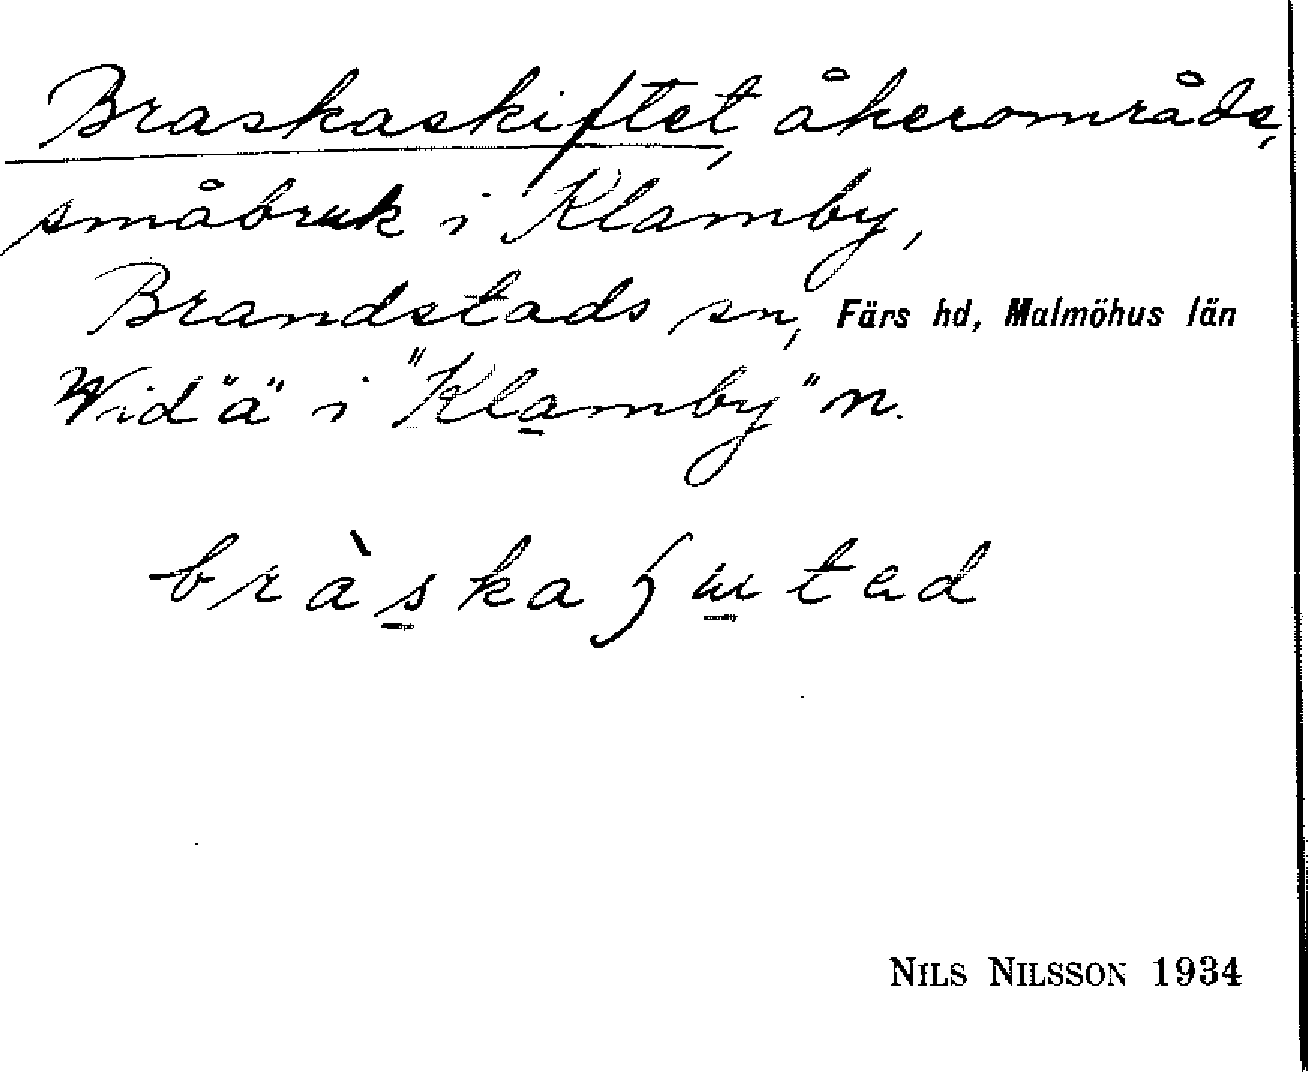 Braskaskiftet, åkerområde,
småbruk i Klamby,
Brandstads sn, Färs hd, Malmöhus län
Wid "ä" i "Klamby" n.
NILS NILSSON 1934